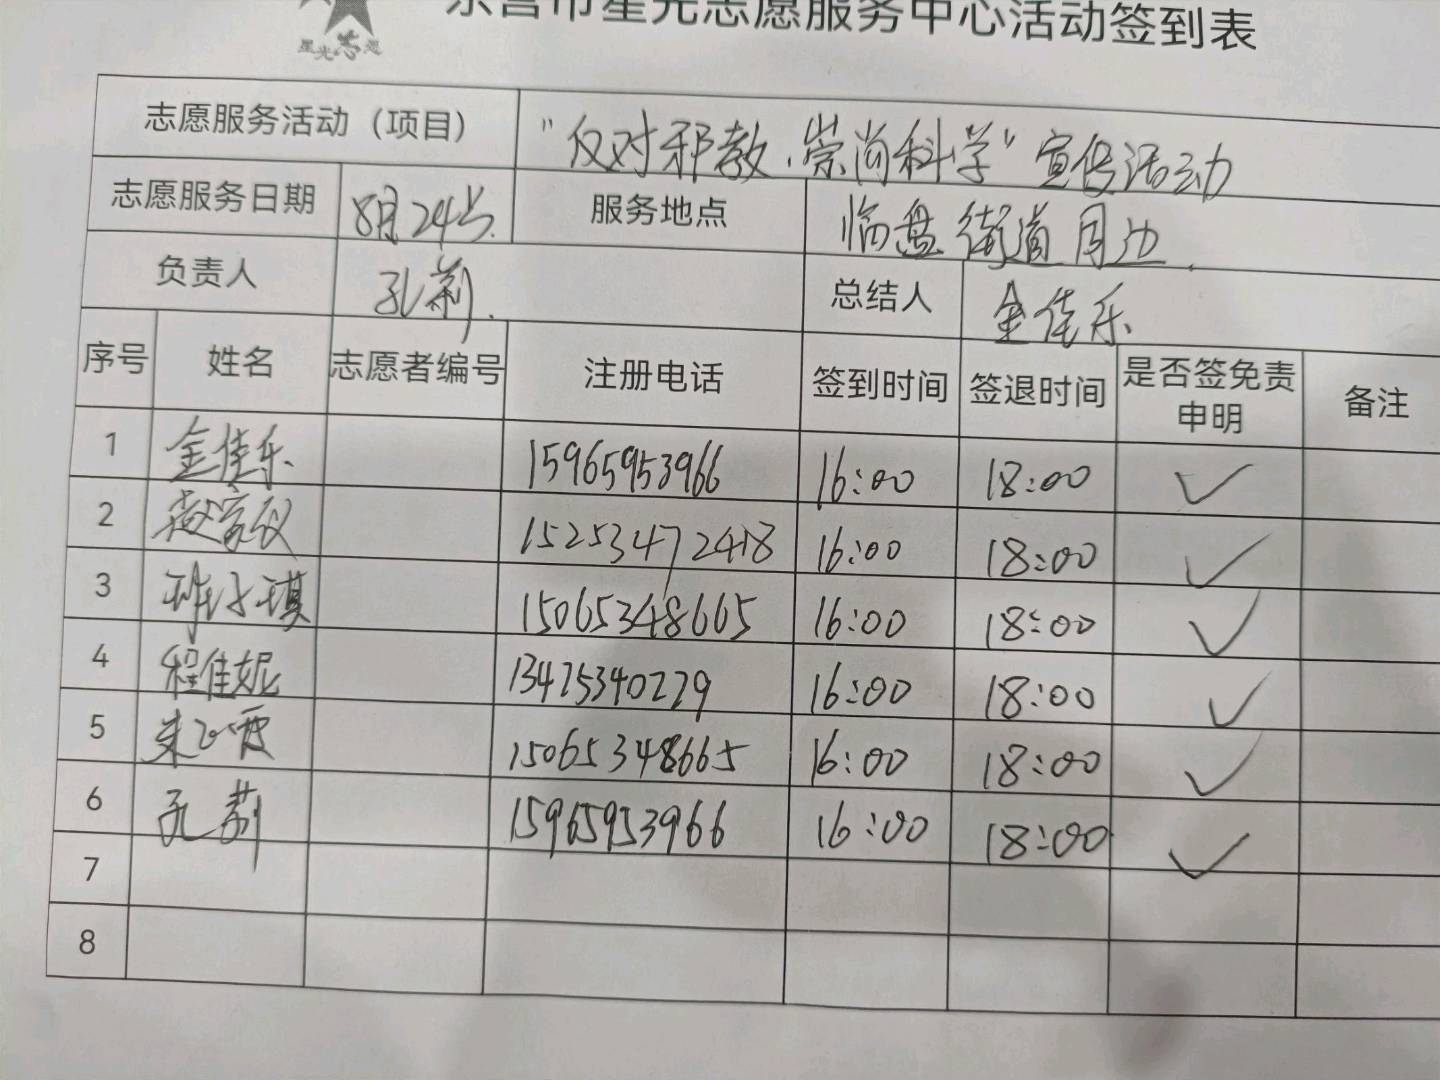 星光志愿
东营市星光志愿服务中心活动签到表
志愿服务活动（项目） "反对邪教、崇尚科学"宣传活动
志愿服务日期 8月24号. 服务地点 临盘街道周边.
负责人 孔莉. 总结人 金佳乐
序号 姓名 志愿者编号 注册电话 签到时间 签退时间 是否签免责申明 备注
1 金佳乐 15965953966 16:00 18:00 ✓
2 家仪 15253472418 16:00 18:00 ✓
3 子琪 15065348665 16:00 18:00 ✓
4 程佳妮 13475340279 16:00 18:00 ✓
5 朱 15065348665 16:00 18:00 ✓
6 孔莉 15965953966 16:00 18:00 ✓
7
8